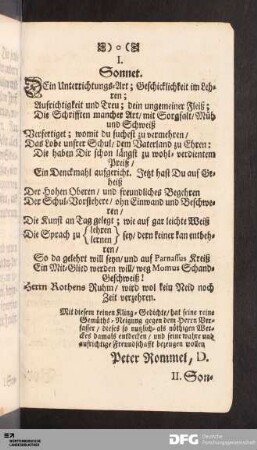 ☼) o (☼
I.
Sonnet.
DEin Unterrichtungs-Art; Geschicklichkeit im Leh-
ren;
Aufrichtigkeit und Treu; dein ungemeiner Fleiß;
Die Schrifften mancher Art/ mit Sorgfalt/ Müh
und Schweiß
Verfertiget; womit du suchest zu vermehren/
Das Lobe unsrer Schul/ dem Vaterland zu Ehren:
Die haben Dir schon längst zu wohl-verdientem
Preiß/
Ein Denckmahl aufgericht. Jetzt hast Du auf Ge-
heiß
Der Hohen Oberen/ und freundliches Begehren
Der Schul-Vorstehere/ ohn Einwand und Beschwe-
ren/
Die Kunst an Tag gelegt; wie auf gar leichte Weiß
Die Sprach zu { lehren
lernen } sey/ deren keiner kan entbeh-
ren/
So da gelehrt will seyn/ und auf Parnassus Kreiß
Ein Mit-Glied werden will/ weg Momus Schand-
Geschweiß!
Herrn Rothens Ruhm/ wird wol kein Neid noch
Zeit verzehren.
Mit diesem reinen Kling-Gedichte/ hat seine
Gemüths-Neigung gegen dem Herrn Ver-
fasser/ dieses so nutzlich- als nöthigen Wer-
ckes damals entdecken/ und seine wahre und
aufrichtige Freundschafft bezeugen wollen
Peter Rommel, D.
II. Son-
DFG Deutsche
Forschungsgemeinschaft